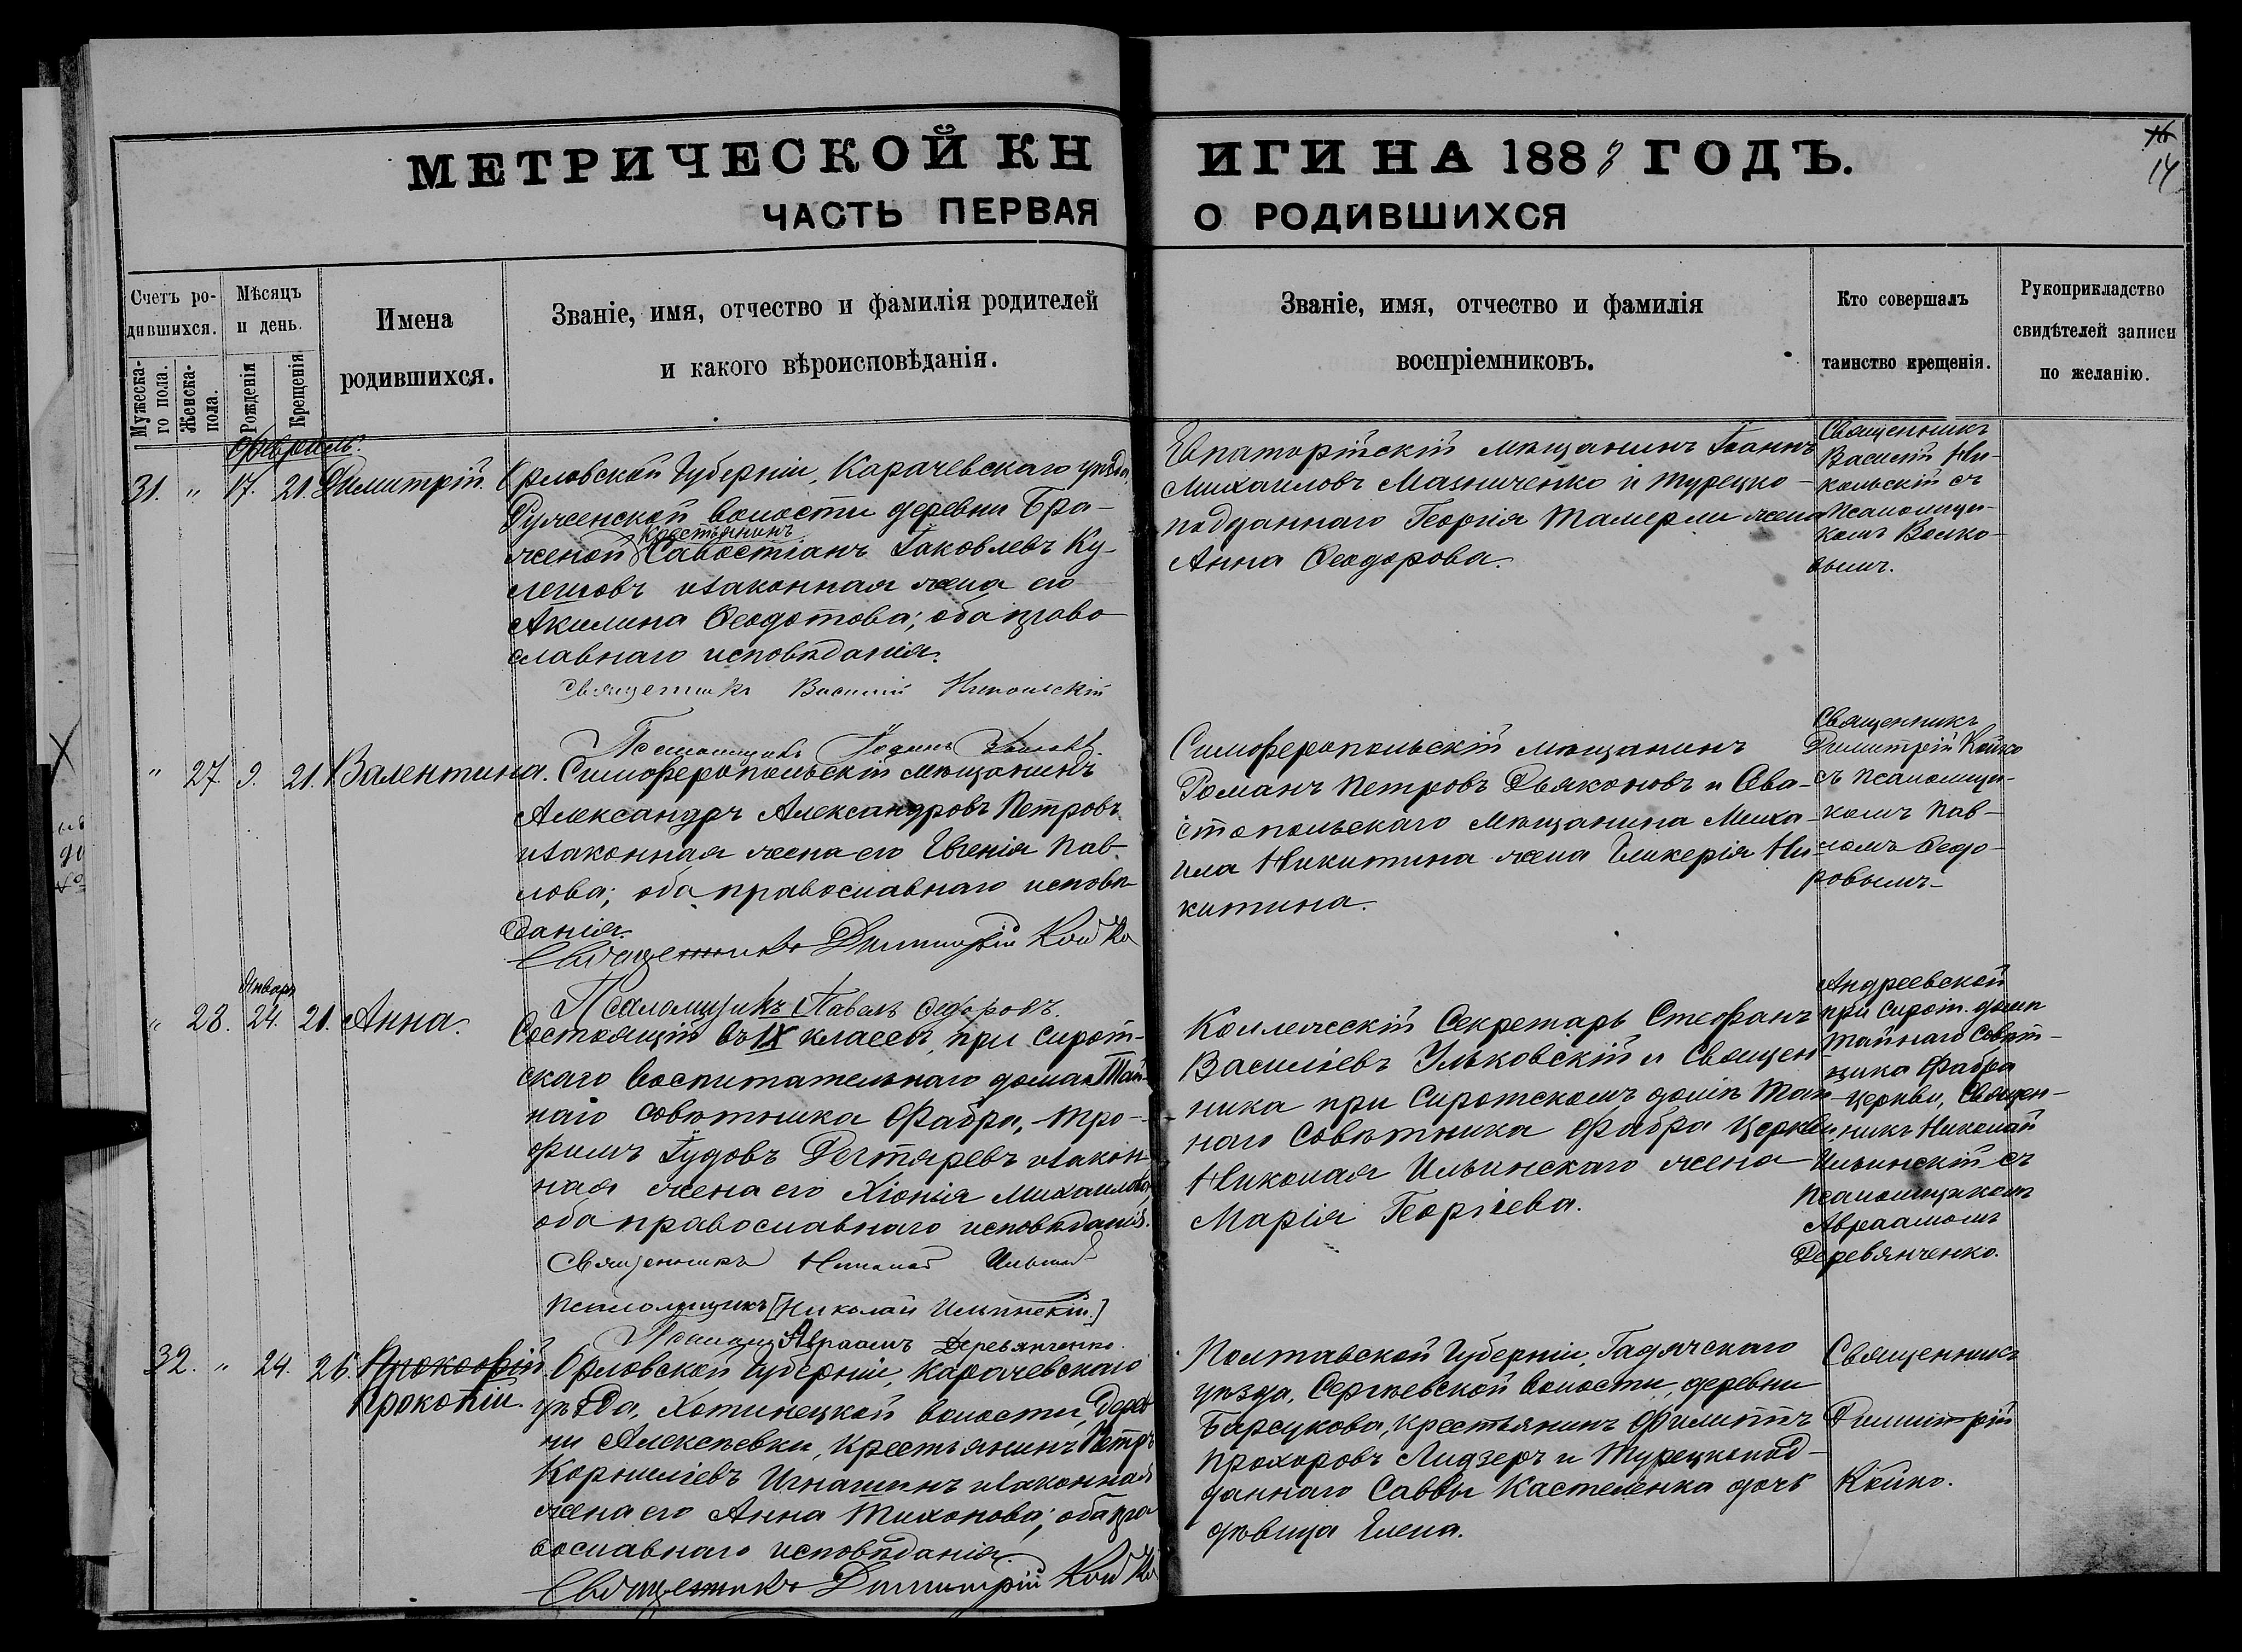 МЕТРИЧЕСКОЙ КНИГИ НА 1888 ГОДЪ.
14
ЧАСТЬ ПЕРВАЯ О РОДИВШИХСЯ
Счетъ ро-
дившихся.
Мужеска-
го пола.
Женска-
пола.
Мѣсяцъ
и день.
Рожденія
Крещенія
Имена
родившихся.
Званіе, имя, отчество и фамилія родителей
и какого вѣроисповѣданія.
Званіе, имя, отчество и фамилія
воспріемниковъ.
Кто совершалъ
таинство крещенія.
Рукоприкладство
свидѣтелей записи
по желанію.
Февраль.
31. " 17. 21. Димитрій.
Орловской Губерніи, Карачевскаго уѣзда,
волости деревни Бра-
крестьянинъ
женой Савостіанъ Іаковлевъ Ку-
лешовъ изаконная жена его
Акилина Ѳеодотова; оба право
славнаго исповѣданія.
Священникъ Василій Никольскій
Псаломщикъ
Евпаторійскій мѣщанинъ Іоаннъ
Михаиловъ Мазниченко и турецко-
подданнаго Георгія жена
Анна Ѳеодорова.
Священникъ
Василій Ни-
кольскій съ
псаломщи-
комъ Волко-
вымъ.
" 27 9. 21. Валентина.
Симферопольскій мѣщанинъ
Александръ Александровъ Петровъ
изаконная жена его Евгенія Пав-
лова; оба православнаго исповѣ-
данія.
Священникъ Димитрій Койко
Псаломщикъ Павелъ Ѳедоровъ.
Симферопольскій мѣщанинъ
Романъ Петровъ Дьяконовъ и Сева-
стопольскаго мѣщанина Миха-
ила Никитина жена Гликерія Ни-
китина.
Священникъ
Димитрій Койко
съ псаломщи-
комъ Пав-
ломъ Ѳедо-
ровымъ.
Январь
" 28. 24. 21. Анна.
Состоящій въ IX классѣ, при Сирот-
скаго воспитательнаго дома Тай-
наго совѣтника Фабра, Тро-
фимъ Іудовъ Дегтяревъ изакон-
ная жена его Хіонія Михаилова,
оба православнаго исповѣданія.
Священникъ Николай
Псаломщикъ [Николай Ильинскій.]
Псаломщ Авраамъ Деревянченко.
Коллежскій Секретарь Стефанъ
Василіевъ Ульковскій и Священ
ника при Сиротскомъ домѣ Тай-
наго Совѣтника Фабра Церкви,
Николая Ильинскаго жена
Марія Георгіева.
Андреевской
при Сирот. домѣ
Тайнаго Совѣт-
ника Фабра
Церкви, Священ-
никъ Николай
Ильинскій съ
псаломщикомъ
Авраамомъ
Деревянченко.
32. " 24. 26. Прокофій
Прокопій.
Орловской Губерніи, Карачевскаго
уѣзда, Хотинецкой волости, дерев
ни Алексѣевки, крестьянинъ Петръ
Корниліевъ Игнашинъ изаконная
жена его Анна Тихонова; оба пра
вославнаго исповѣданія.
Священникъ Димитрій Койко
Полтавской Губерніи, Гадячскаго
уѣзда, Сергѣевской волости, деревни
Барсукова, крестьянинъ Филиппъ
Прохоровъ Лидзеръ и Турецкопод-
даннаго Саввы Кастеленка дочь
дѣвица Елена.
Священникъ
Димитрій
Койко.